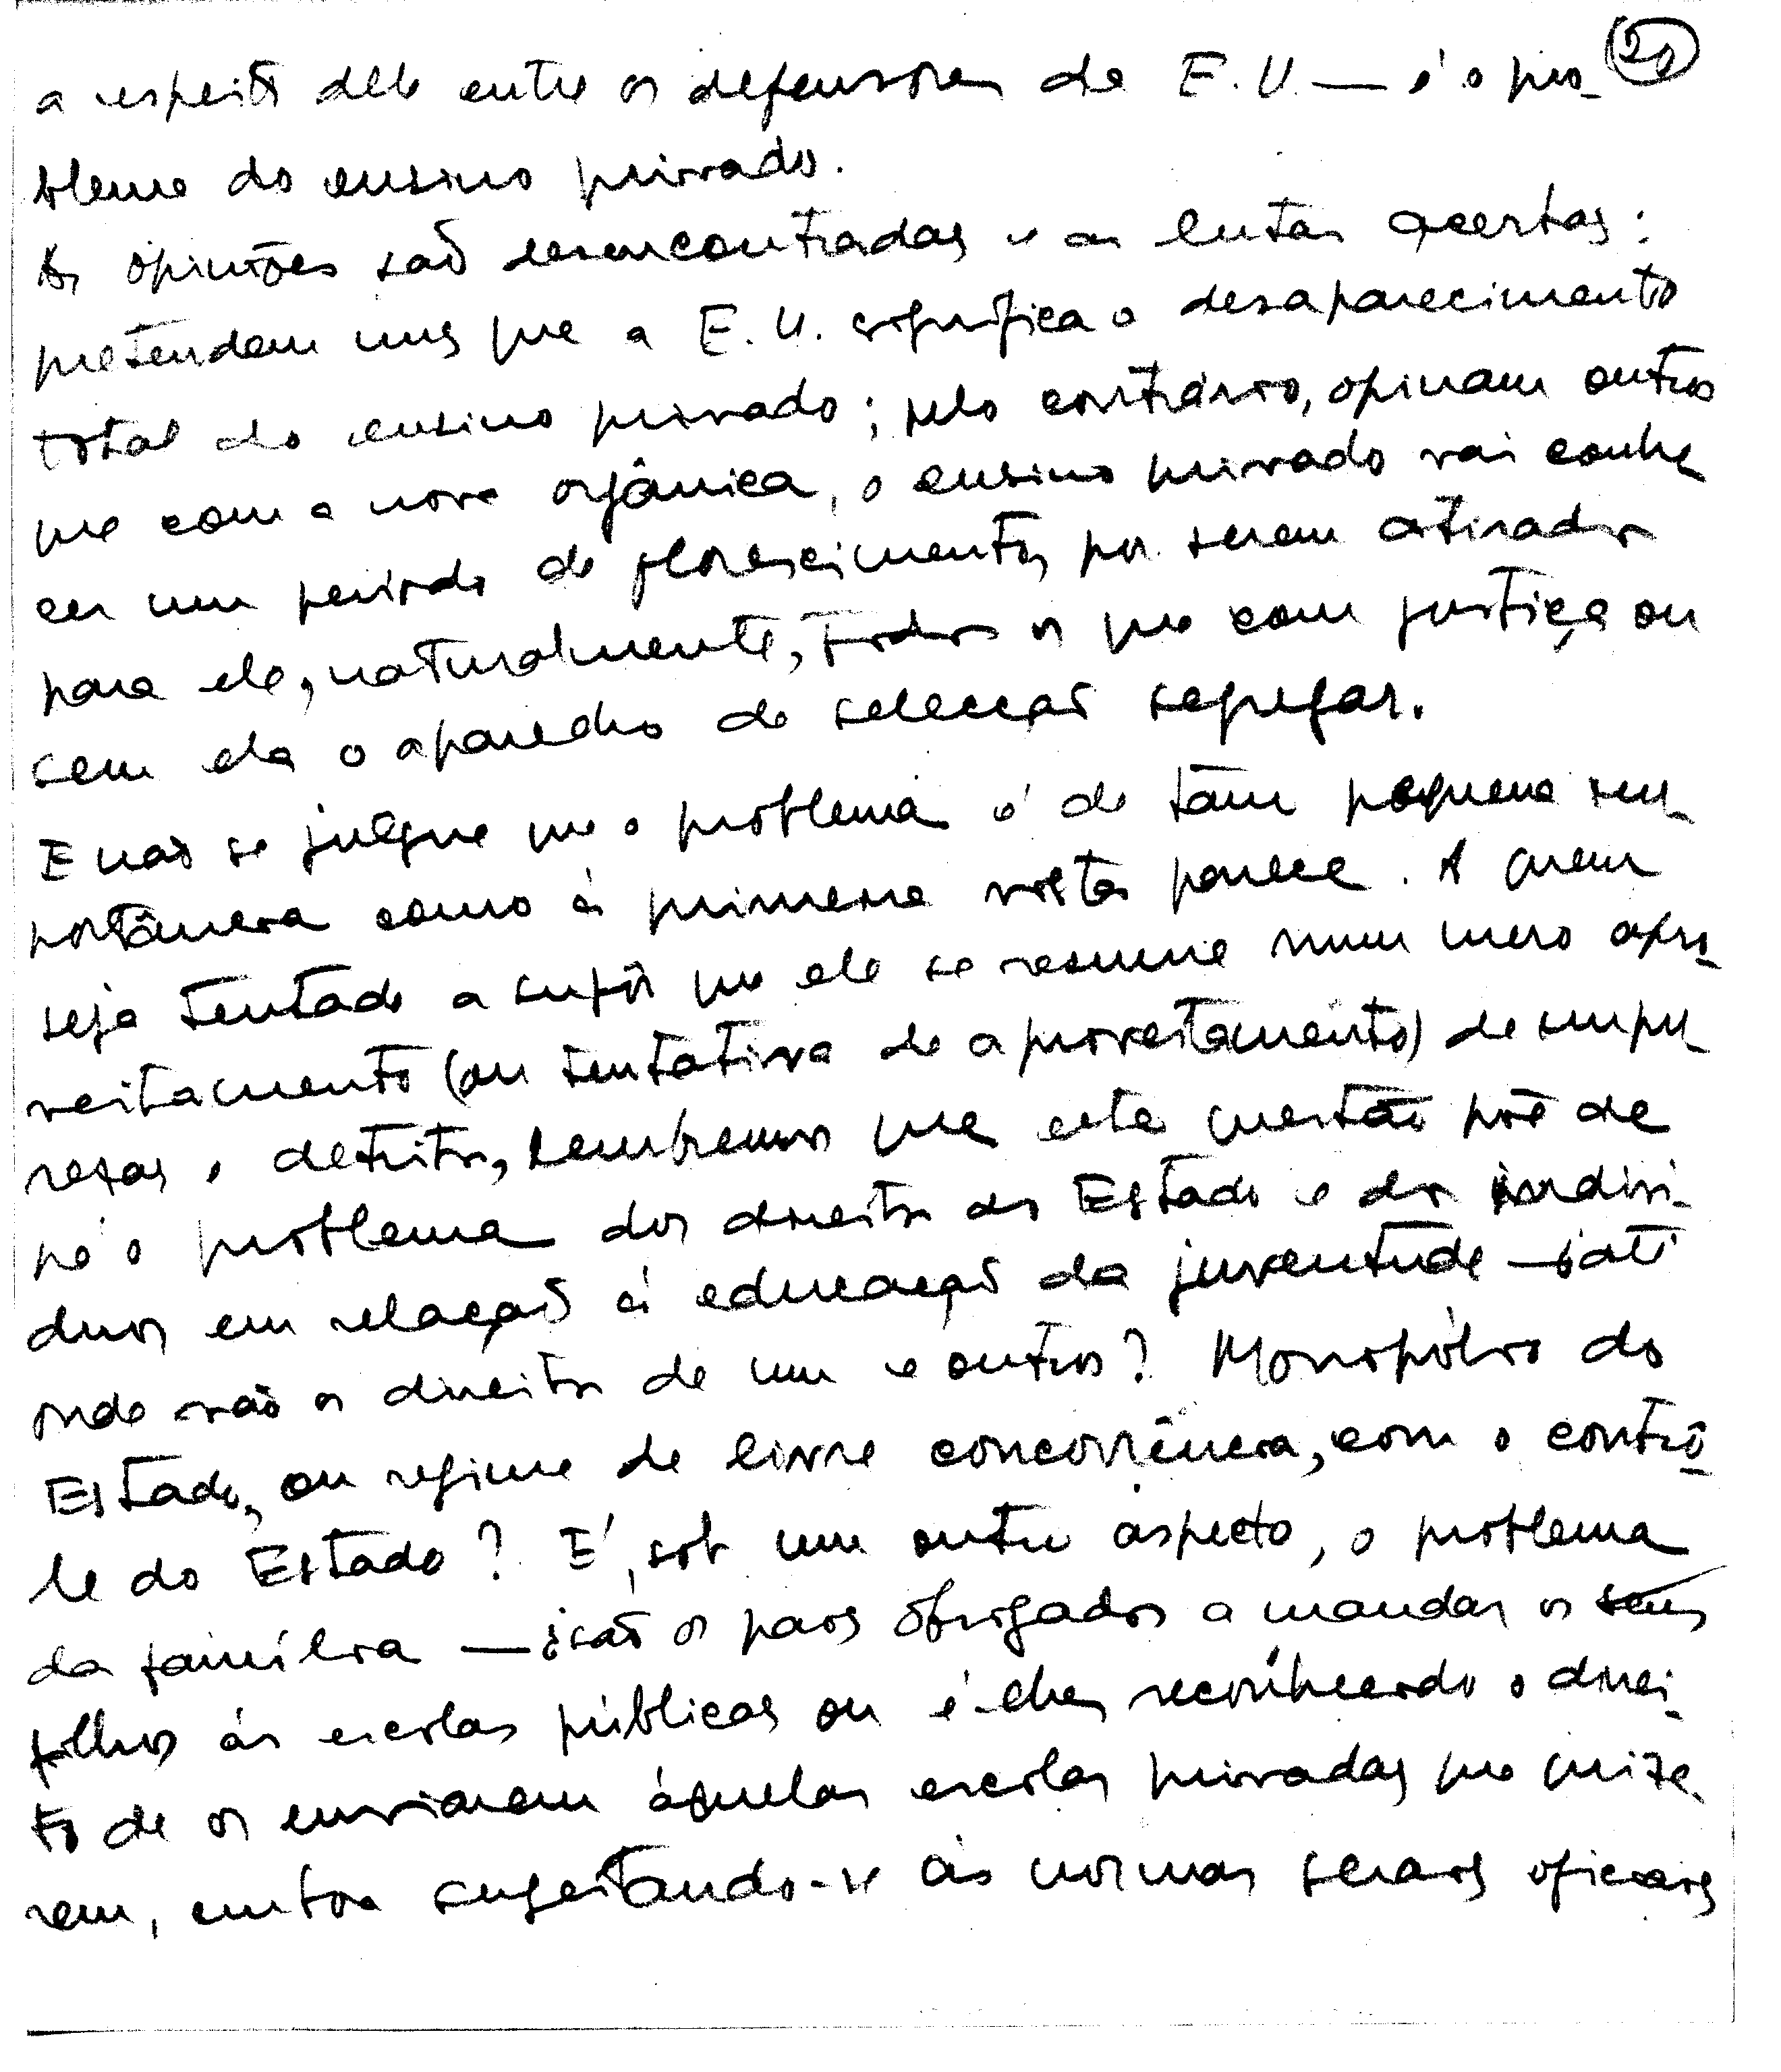 20
a respeito dele entre os defensores da E.U. — é o pro-
blema do ensino privado.
As opiniões são desencontradas e as lutas acerbas:
pretendem uns que a E.U. significa o desaparecimento
total do ensino privado; pelo contrário, opinam outros
que com a nova orgânica, o ensino privado vai conhe
cer um período de florescimento, por serem atirados
para ele, naturalmente, todos os que com justiça ou
sem ela o aparelho de selecção segregar.
E não se julgue que o problema é de tãm pequena im-
portância como à primeira vista parece. A quem
seja tentado a supôr que ele se resume num mero apro-
veitamento (ou tentativa de aproveitamento) de impu-
rezas e detritos, lembremos que esta questão põe de
pé o problema dos direitos do Estado e dos indiví-
duos em relação à educação da juventude — ¿até
onde vão os direitos de um e outros? Monopólio do
Estado, ou regime de livre concorrência, com o contrô-
le do Estado? É, sob um outro aspecto, o problema
da família — ¿são os pais obrigados a mandar os seus
filhos às escolas públicas ou é-lhes reconhecido o direi-
to de os enviarem àquelas escolas privadas que quize-
rem, embora sugeitando-se às normas gerais oficiais